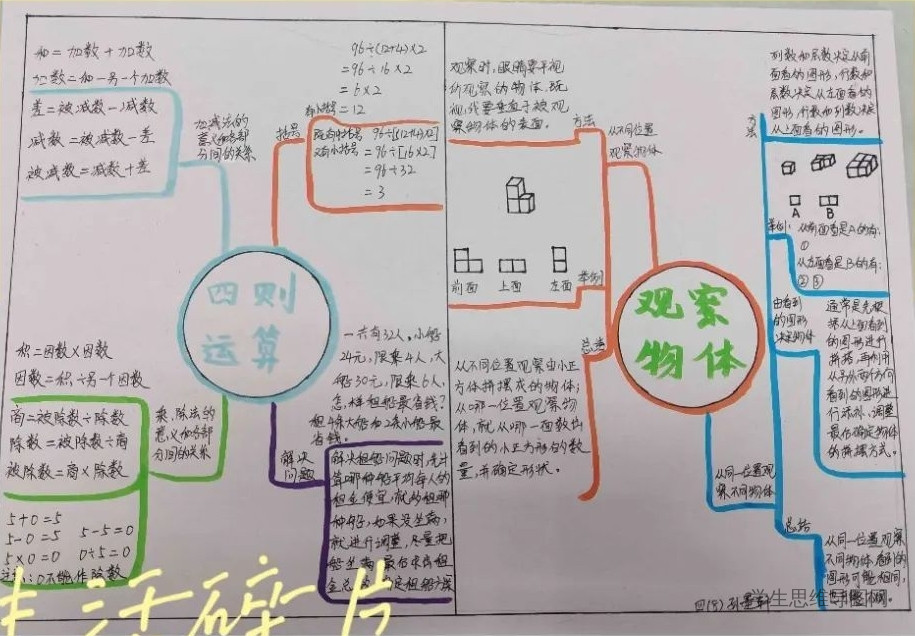 和=加数+加数
加数=和-另一个加数
差=被减数-减数
减数=被减数-差
被减数=减数+差
加减法的
意义和各部
分间的关系
四则
运算
积=因数×因数
因数=积÷另一个因数
商=被除数÷除数
除数=被除数÷商
被除数=商×除数
乘、除法的
意义和各部
分间的关系
5+0=5
5-0=5 5-5=0
5×0=0 0÷5=0
注意:0不能作除数
括号
96÷(12+4)×2
=96÷16×2
=6×2
=12
有小括号
既有中括号
又有小括号
96÷[(12+4)×2]
=96÷[16×2]
=96÷32
=3
一共有32人。小船
24元,限乘4人,大
船30元,限乘6人。
怎样租船最省钱?
租4条大船和2条小船最
省钱。
解决
问题
解决租船问题时,先计
算哪种船平均每人的
租金便宜,就
种船,如果没坐满,
就进行调整,尽量把
船坐满,最后
观察时,眼睛要平视
所观察的物体,
视线要垂直于被观
察物体的表面。
方法
从不同位置
观察物体
前面 上面 左面
举例
总结
从不同位置观察由小正
方体拼摆成的物体,
从哪一位置观察物
体,就从哪一面数出
看到的小正方形的数
量,并确定形状。
观察
物体
列数和层数决定从前
面看的图形,行数和
层数决定从左面看的
图形,行数和列数决定
从上面看的图形。
方法
A B
举例:
从前面看是A的有:
①
从左面看是B的有:
②③
由看到
的图形
决定物体
通常是先根
据从上面看到
的图形进行
拼搭,再利用
从另外两个方向
看到的图形进
行添补、调整,
最后确定物体
的拼搭方式。
从同一位置观
察不同物体
总结
从同一位置观察
不同物体看到的
图形可能相同,
生活碎片
学生思维导图网